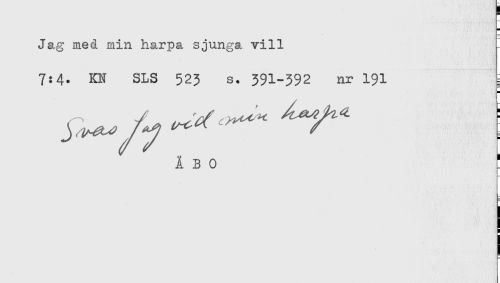 Jag med min harpa sjunga vill
7:4. KN SLS 523 s. 391-392 nr 191
Svas Jag vid min harpa
Å B O